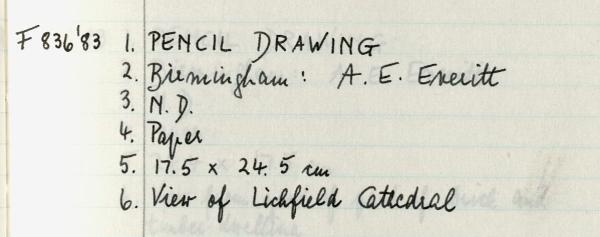 F 836'83 1. PENCIL DRAWING
2. Birmingham: A. E. Everitt
3. N.D.
4. Paper
5. 17.5 x 24.5 cm
6. View of Lichfield Cathedral